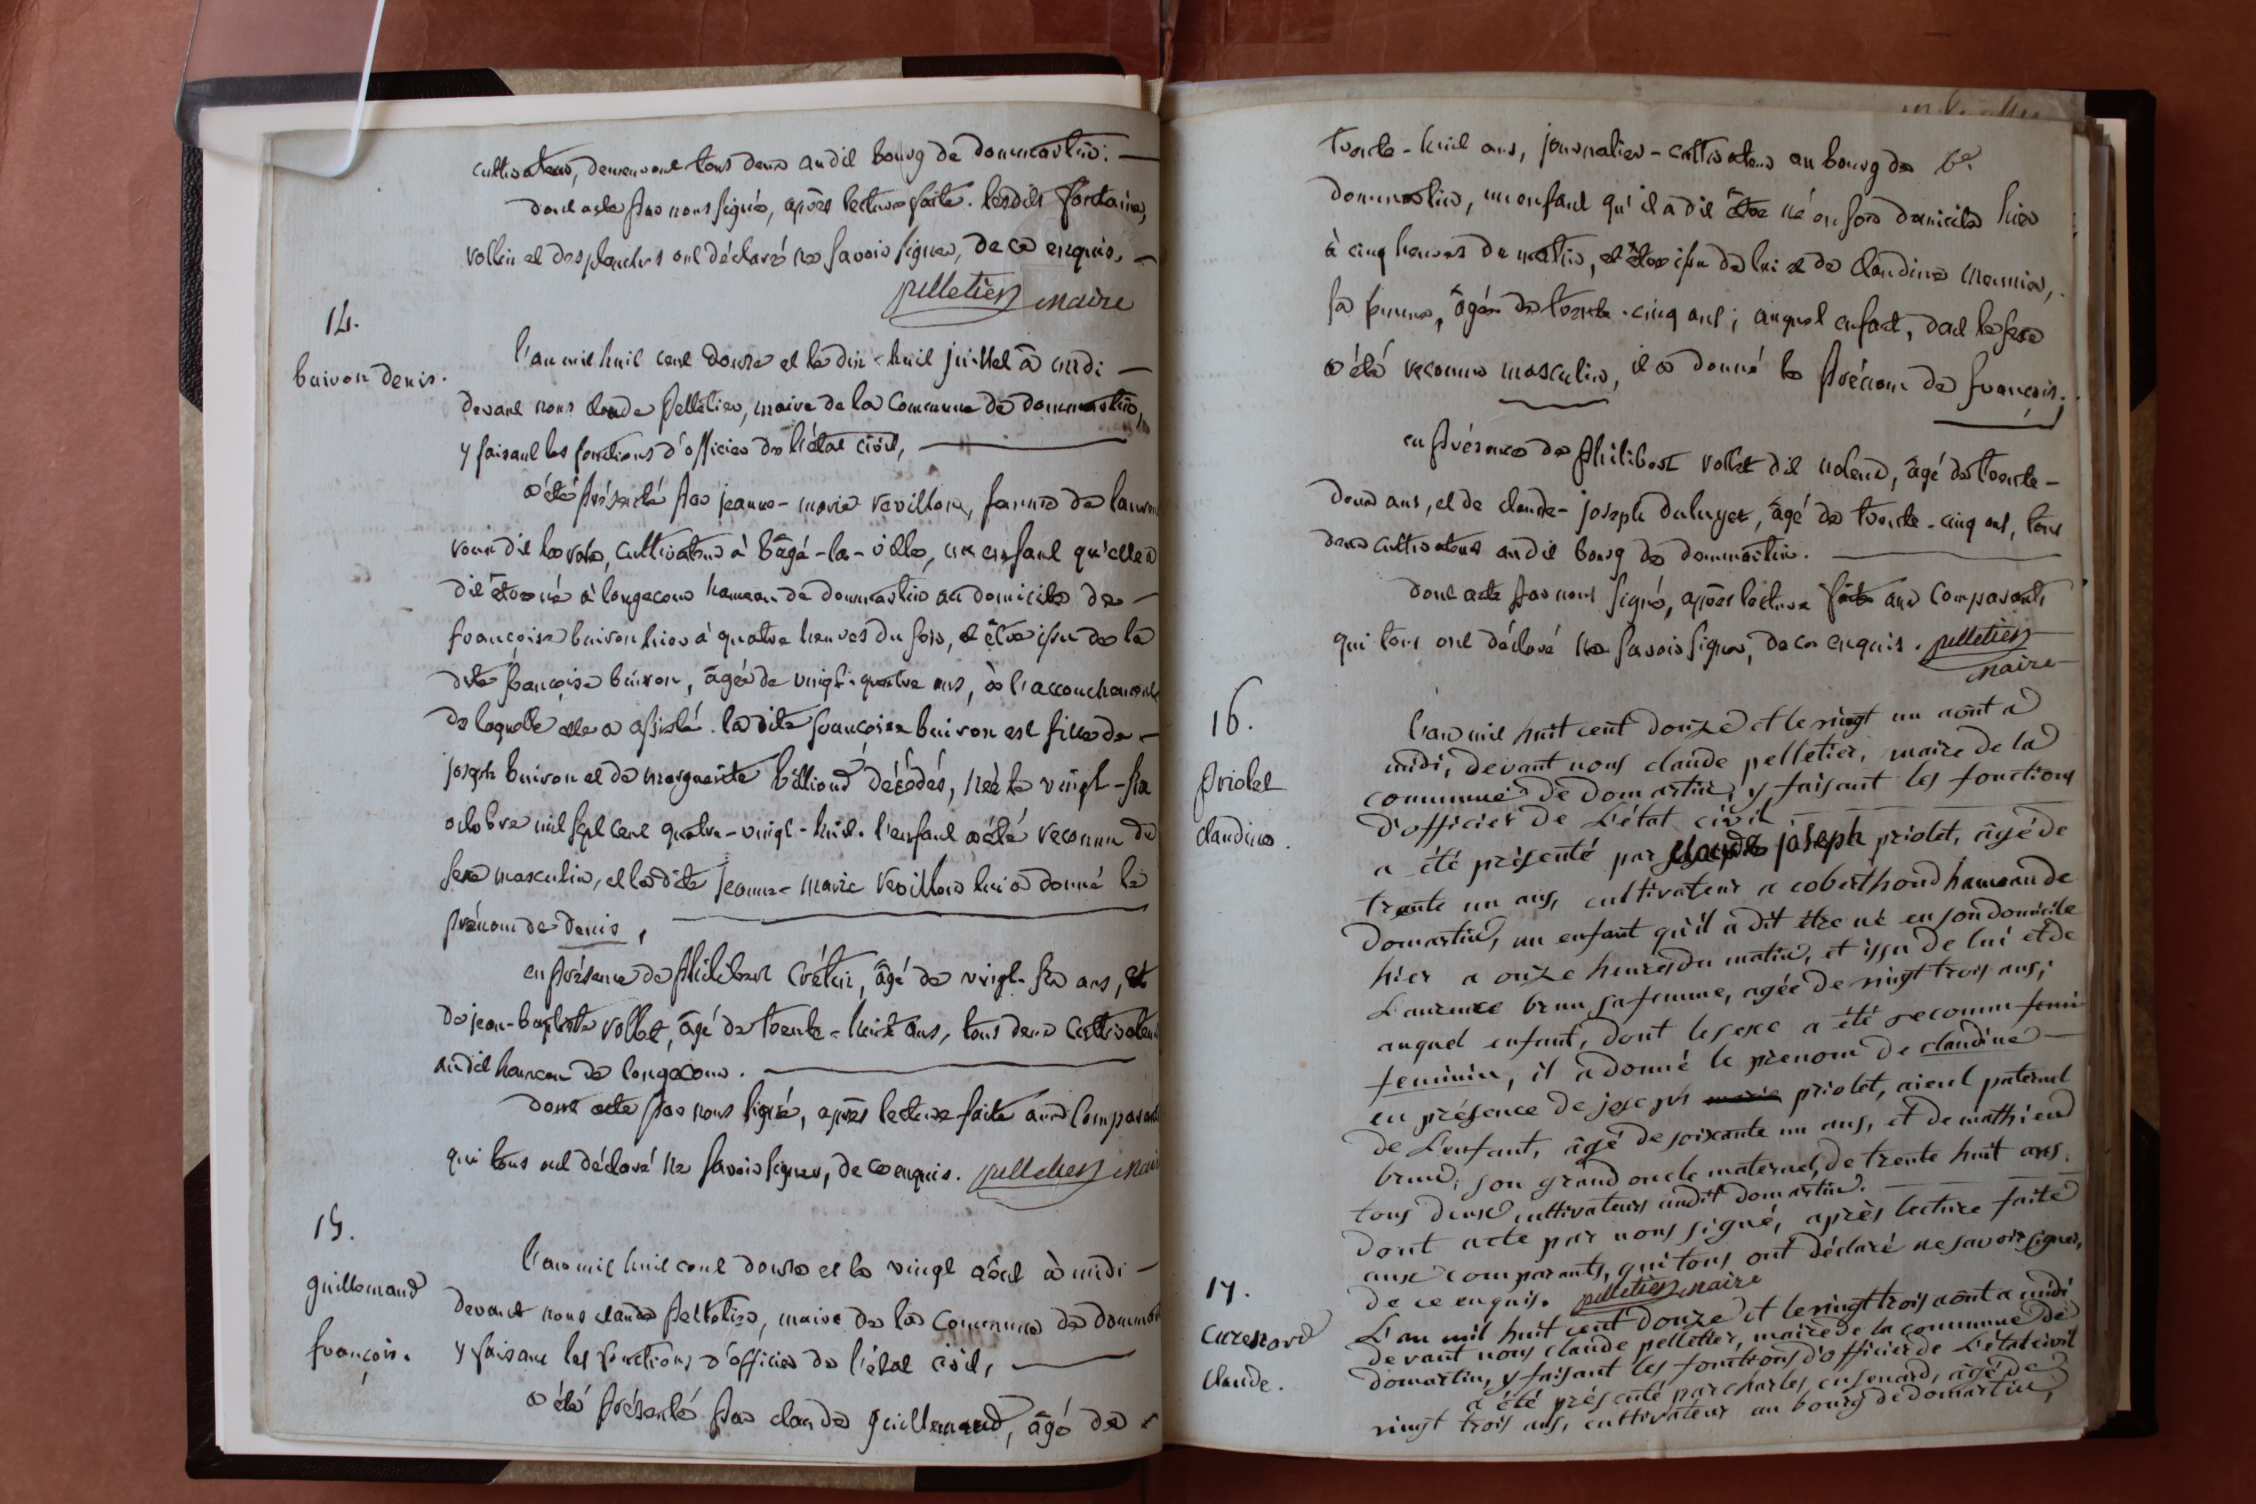 cultivateurs, demeurant tous deux audit bourg de dommartin. —
dont acte par nous signé, après lecture faite. lesdits fontaine,
vollin et desplanches ont déclaré ne savoir signer, de ce enquis. —
pelletier maire
14.
buiron denis.
l'an mil huit cent douze et le dix-huit juillet à midi —
devant nous claude pelletier, maire de la commune de dommartin,
y faisant les fonctions d'officier de l'état civil, —
a été présenté par jeanne-marie revillon, femme de
dit cultivateur à bâgé-la-ville, un enfant qu'elle a
dit être né à longecour hameau de dommartin au domicile de —
françoise buiron hier à quatre heures du soir, et être issu de la
dite françoise buiron, âgée de vingt-quatre ans, à l'accouchement
de laquelle elle a assisté. la dite françoise buiron est fille de —
joseph buiron et de marguerite billioud décédés, née le vingt-six
octobre mil sept cent quatre-vingt-huit. l'enfant a été reconnu du
sexe masculin, et la dite jeanne-marie revillon lui a donné le
prénom de denis,
en présence de philibert crétin, âgé de vingt-six ans, et
de jean-baptiste vollet, âgé de trente-huit ans, tous deux cultivateurs
audit hameau de longecour.
dont acte par nous signé, après lecture faite aux comparants
qui tous ont déclaré ne savoir signer, de ce enquis. pelletier maire
15.
guillomaud
françois.
l'an mil huit cent douze et le vingt août à midi —
devant nous claude pelletier, maire de la commune de dommartin
y faisant les fonctions d'officier de l'état civil, —
a été présenté par claude guillemaud, âgé de
trente-huit ans, journalier-cultivateur au bourg de
dommartin, un enfant qu'il a dit être né en son domicile hier
à cinq heures de matin, et être issu de lui et de claudine meunier,
sa femme, âgée de trente-cinq ans; auquel enfant, dont le sexe
a été reconnu masculin, il a donné le prénom de françois.
en présence de philibert vollet dit âgé de trente-
deux ans, et de claude-joseph duluyet, âgé de trente-cinq ans, tous
deux cultivateurs audit bourg de dommartin.
dont acte par nous signé, après lecture faite aux comparants
qui tous ont déclaré ne savoir signer, de ce enquis. pelletier
maire
16.
priolet
claudine.
l'an mil huit cent douze et le vingt un août a
midi, devant nous claude pelletier, maire de la
commune de domartin, y faisant les fonctions
d'officier de l'état civil
a été présenté par claude joseph priolet, âgé de
trente un ans, cultivateur a coberthoud hameau de
domartin, un enfant qu'il a dit être né en son domicile
hier a onze heures du matin, et issu de lui et de
Laurence brun sa femme, agée de vingt trois ans;
auquel enfant, dont le sexe a été reconnu femi-
feminin, il a donné le prenom de claudine —
en présence de joseph marie priolet, aieul paternel
de L'enfant, âgé de soixante un ans, et de mathieu
brun, son grand oncle maternel, de trente huit ans.
tous deux cultivateurs audit domartin.
Dont acte par nous signé, après lecture faite
aux comparants, qui tous ont déclaré ne savoir signer,
de ce enquis. pelletier maire
17.
curenard
claude.
L'an mil huit cent douze et le vingt trois août a midi
devant nous claude pelletier, maire de la commune de
domartin, y faisant les fonctions d'officier de L'état civil
a été présenté par charles cusenard, âgé de
vingt trois ans, cultivateur au bourg de domartin,